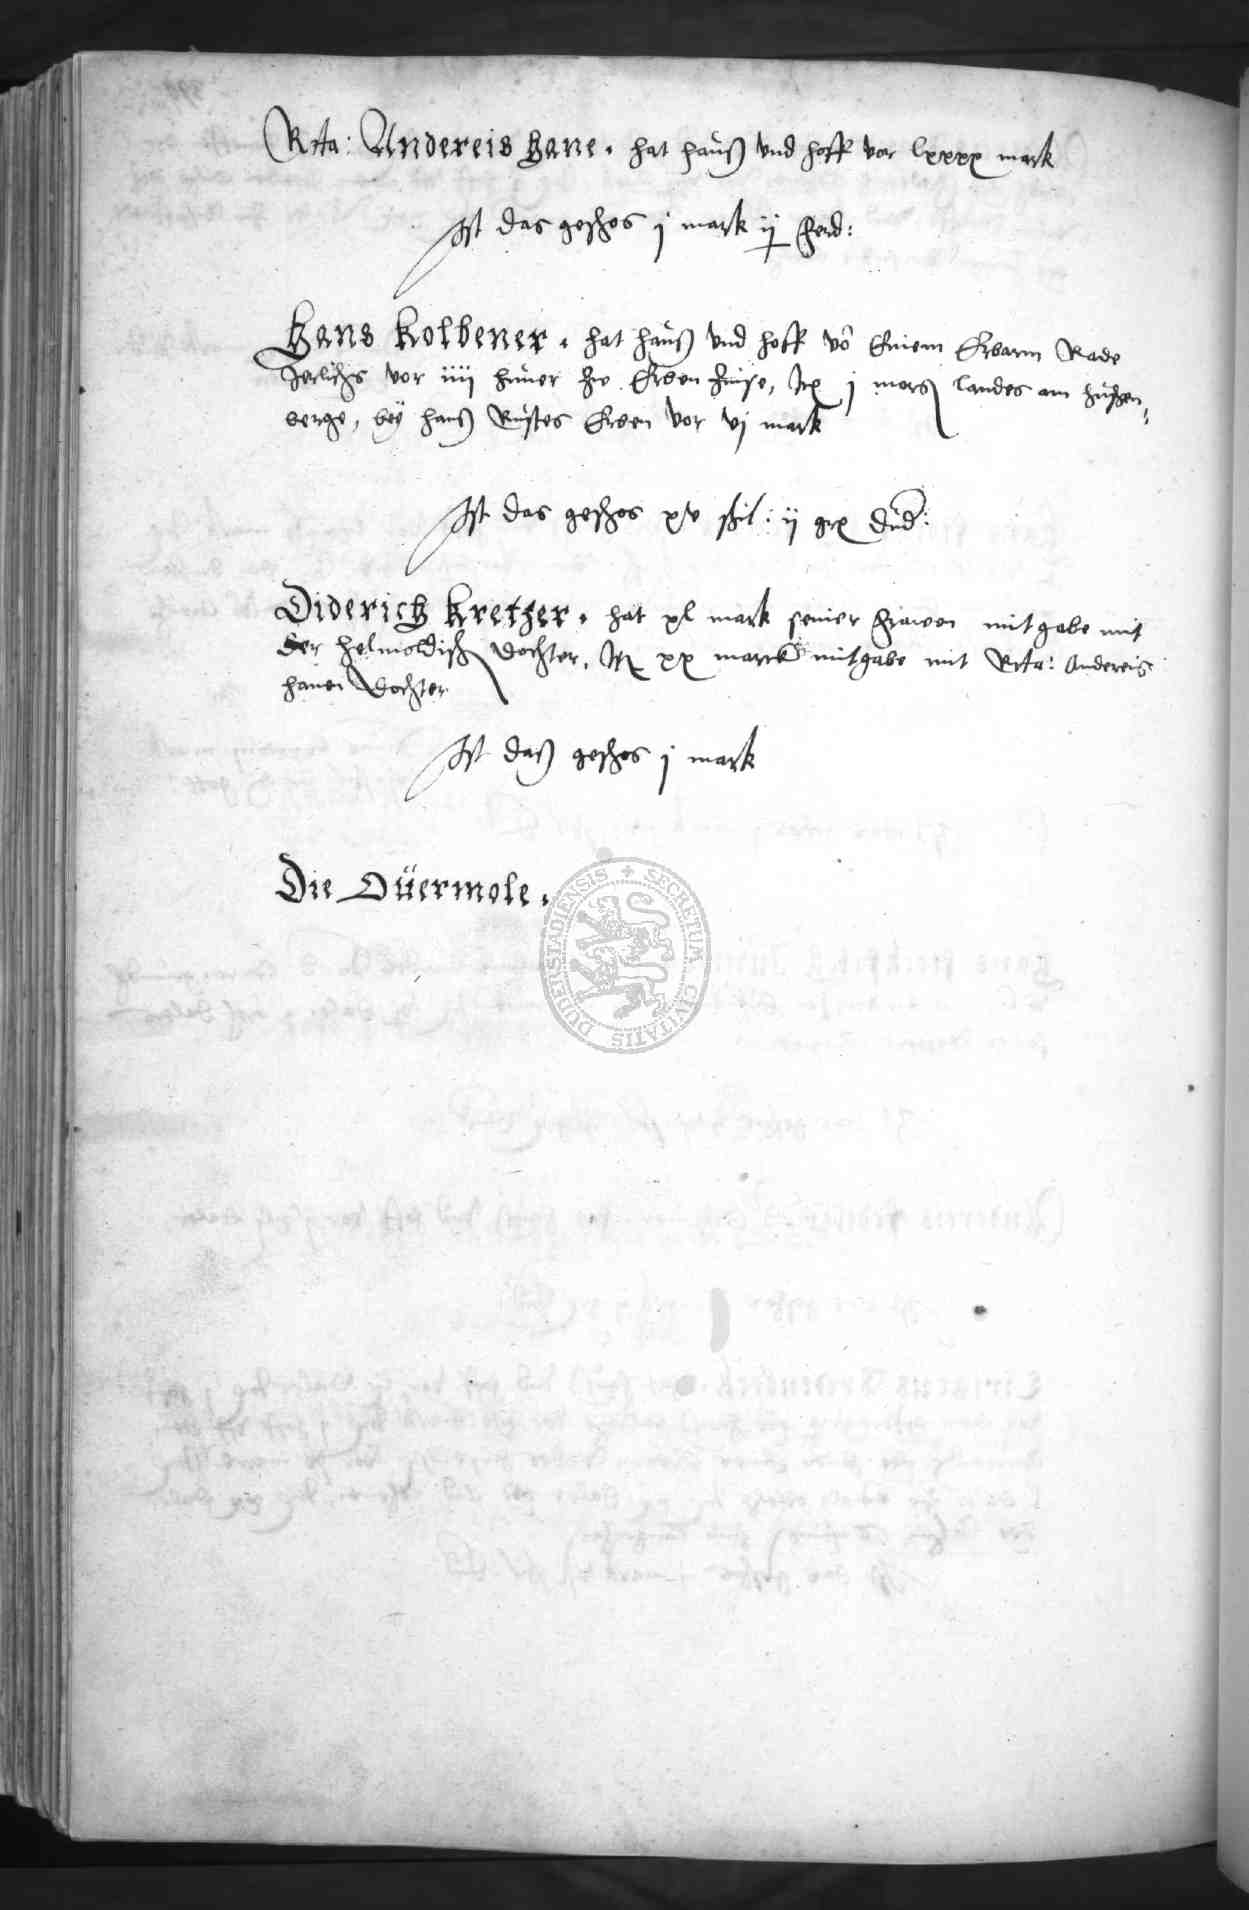 Rcta: Andereis Hane. hat hauß vnd hoff vor lxxxx mark
Ist das geschos j mark ij ferd:
Hans Kolbener. hat hauß vnd hoff võ Einem Erbarn Rade
Jerlichs vor iiij huner zw Erben zinse, j morg landes am
berge, bey hanß Rustes Erben vor vj mark
Ist das geschos xv schil: ij gr dud:
Diderich Krether. hat xl mark seiner frawen mitgabe mit
der helmoldisch dochter, xx marck mitgabe mit Rcta: Andereis
hanen dochter
Ist daß geschos j mark
Die Oüermole.
SECRETUM CIVITATIS DUDERSTADIENSIS